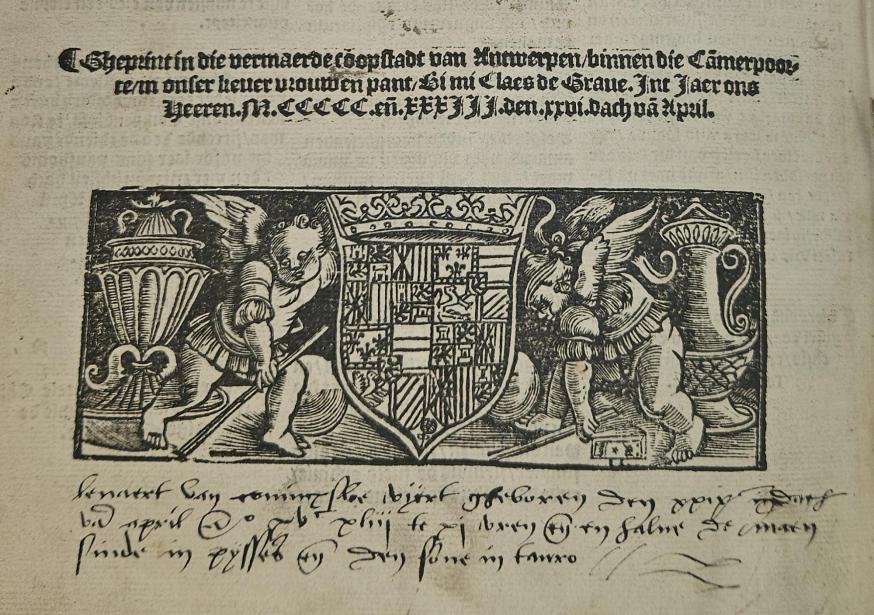 ⁋Gheprint in die vermaerde cōopstadt van Antwerpen/binnen die Cāmerpoor-
te/in onser liever vrouwen pant/Bi mi Claes de Grave. Int Jaer ons
Heeren.M.CCCCC.eñ.XXXIII.den.xxvi.dach vā April.
lenaert van wert gheboren den xxix
vā april aº xvᶜ xliij te xj vren eñ en halue de maen
sinde in pysses eñ den sone in tauro